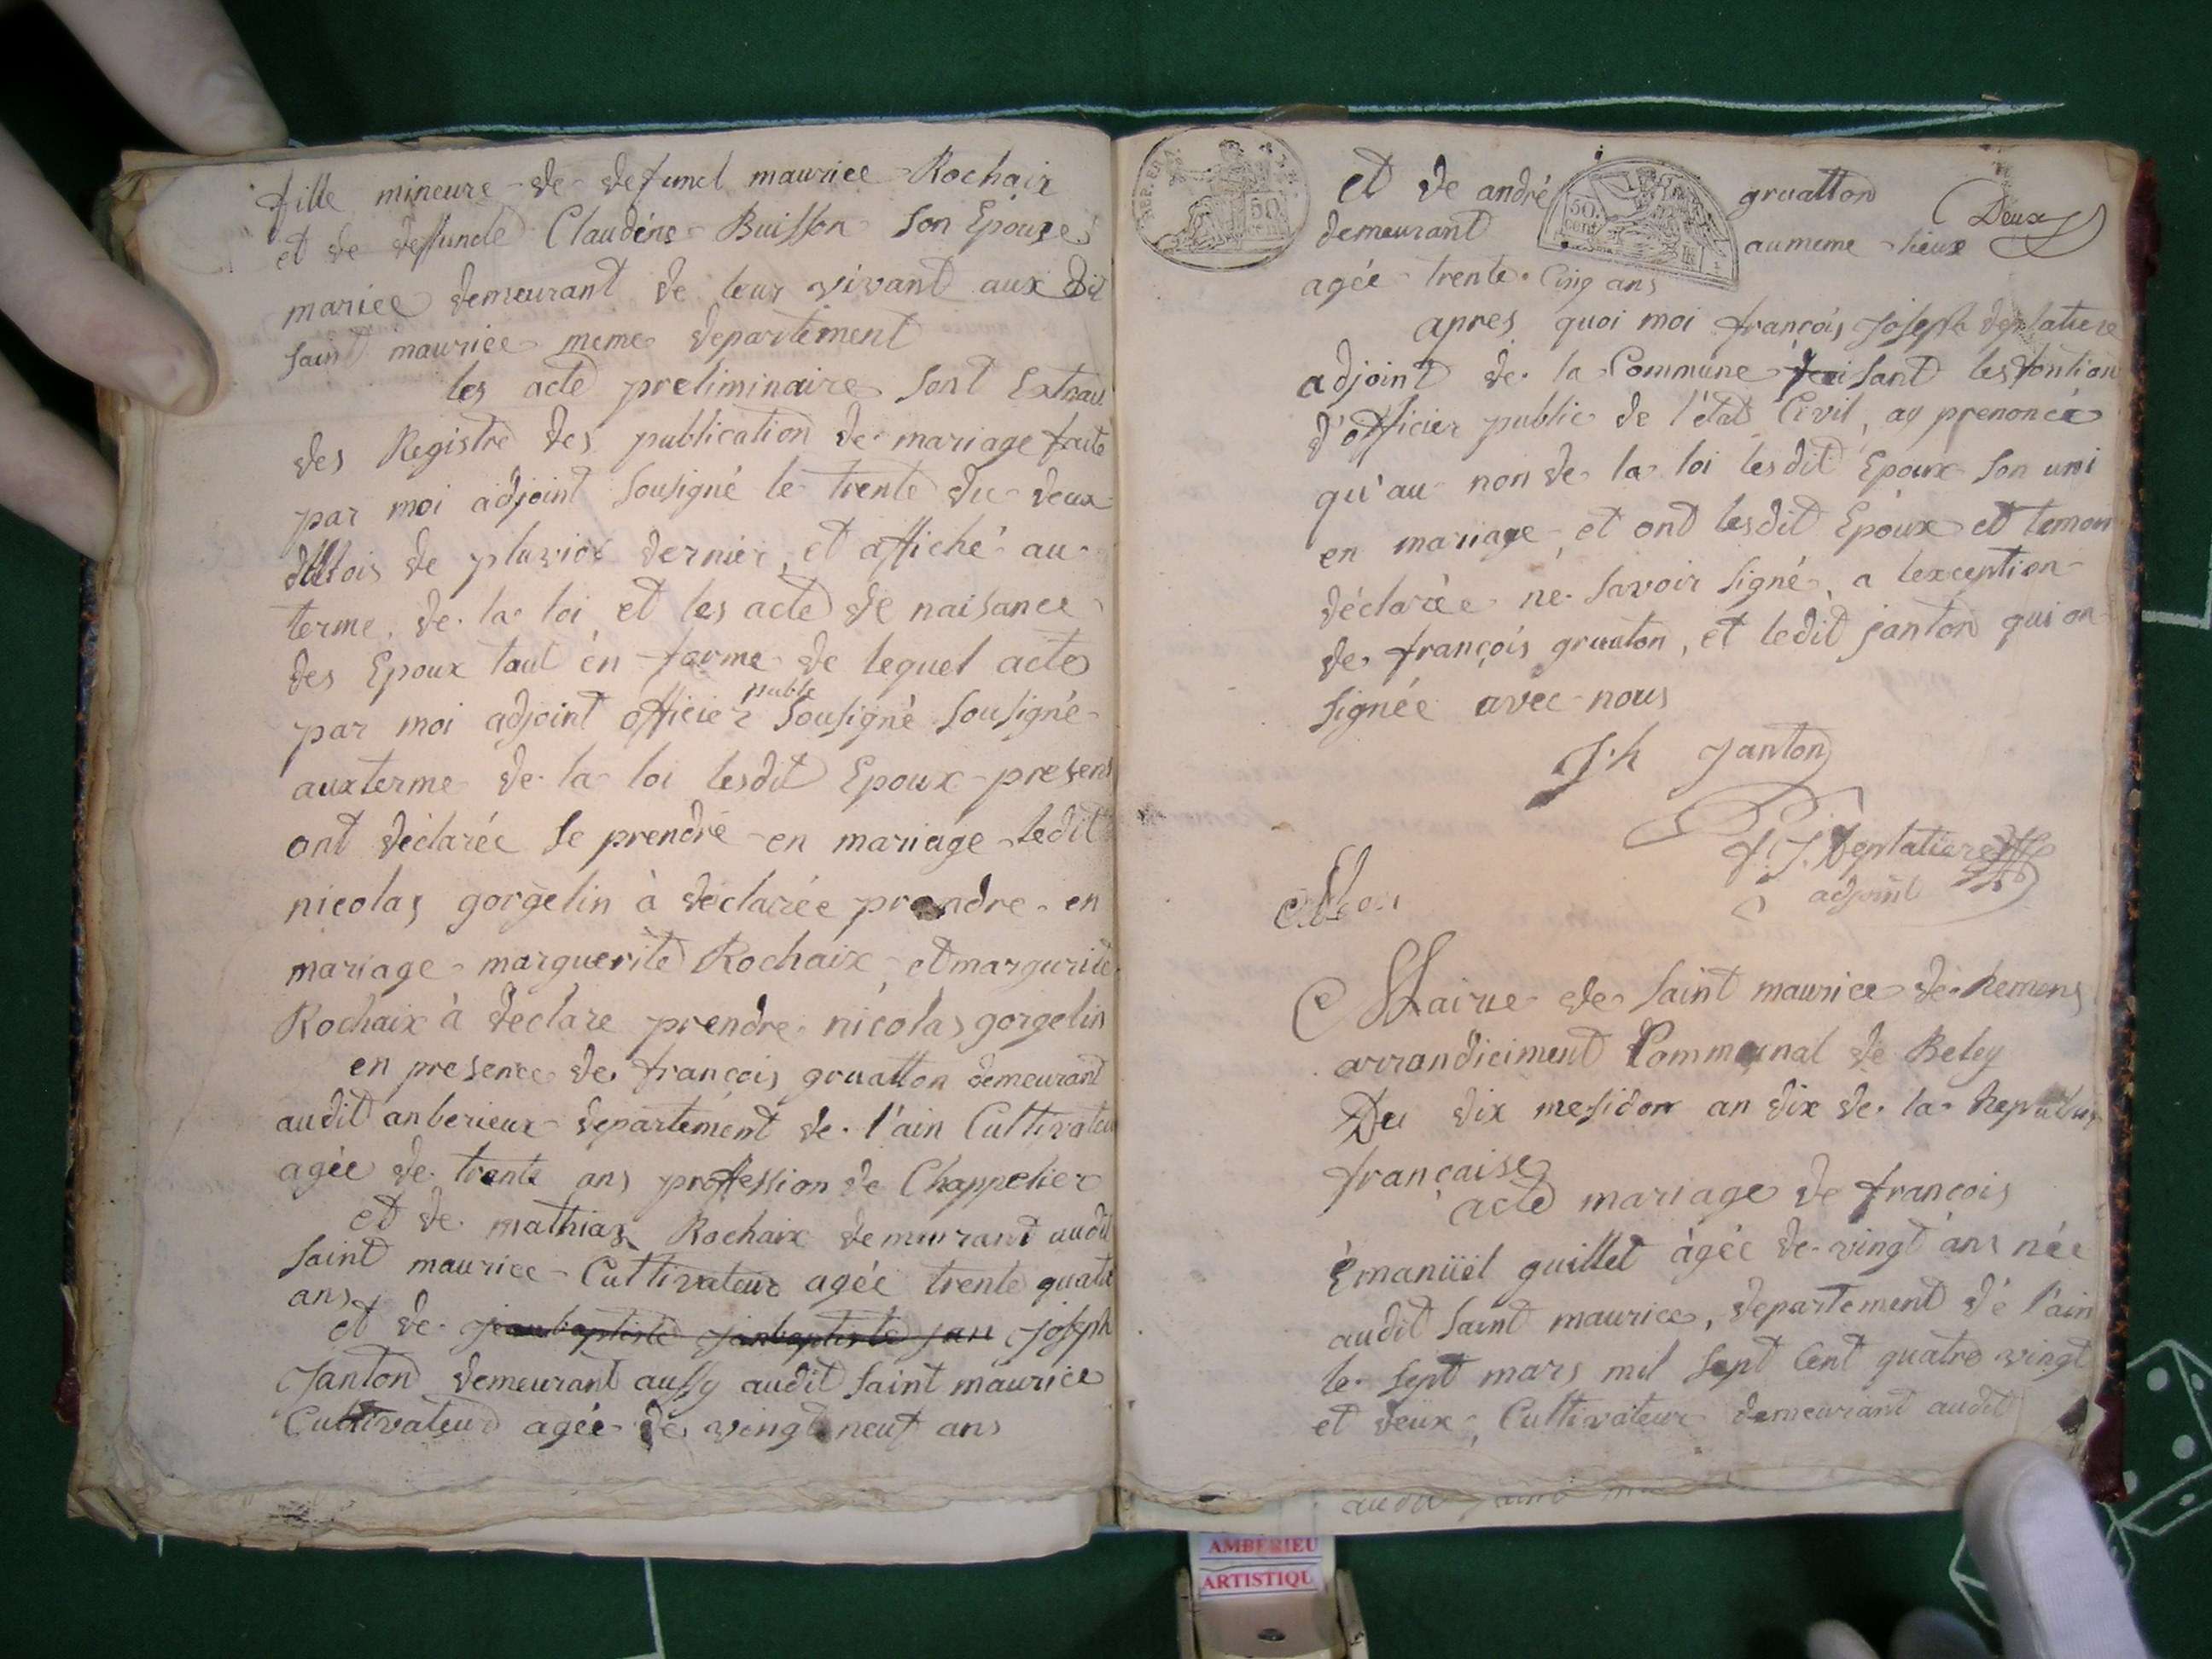 fille mineure de defunct maurice Rochaix
et de deffuncte Claudine Buisson son Epouse
mariee demeurant de leur vivant aux dit
saint maurice meme departement
les acte preliminaire sont Extrait
des Registre des publication de mariage faite
par moi adjoint sousigné le trente du deux
de pluviose dernier, et affiché au
terme de la loi et les acte de naisance
des Epoux tout én forme de lequel acte
publc
par moi adjoint officier sousigné sousigné
aux terme de la loi lesdit Epoux present
ont déclarée se prendre en mariage ledit
nicolas gorgelin à déclarée prendre en
mariage marguerite Rochaix, et margurite
Rochaix à déclare prendre nicolas gorgelin
en presence de françois gruatton demeurant
audit anberieux departement de l'ain Cultivateu
agée de trente ans proffession de Chappelier
et de mathias Rochaix demeurant audit
saint maurice Cultivateur agée trente quatre
ans
et de jeanbaptiste janbaptiste jan joseph
Janton demeurant aussy audit saint maurice
Cultivateur agée de vingt neuf ans
REP. FRA.
50 cent.
et de andré gruatton
Deux
50. cent.
demeurant aumeme lieux
agée trente Cinq ans
apres quoi moi françois joseph deplatiere
adjoint de la Commune faisant les fontion
d'officier public de l'état Civil, ay prenoncée
qu'au non de la loi lesdit Epoux son uni
en mariage, et ont lesdit Epoux et temon
déclarée ne savoir signé, a lexception
de françois gruaton, et ledit janton qui on
signée avec nous
J.h Janton
f. J. Deplatiere
adjoint
Mairie de saint maurice de Remens
arrandiciment Communal de Beley
Du dix mesidor an dix de la Republiq
française
acte mariage de françois
Emanüel guillet àgée de vingt ans née
audit saint maurice, departement de l'ain
le sept mars mil sept Cent quatre vingt
et deux, Cultivateur demeurant audit
AMBÉRIEU
ARTISTIQU